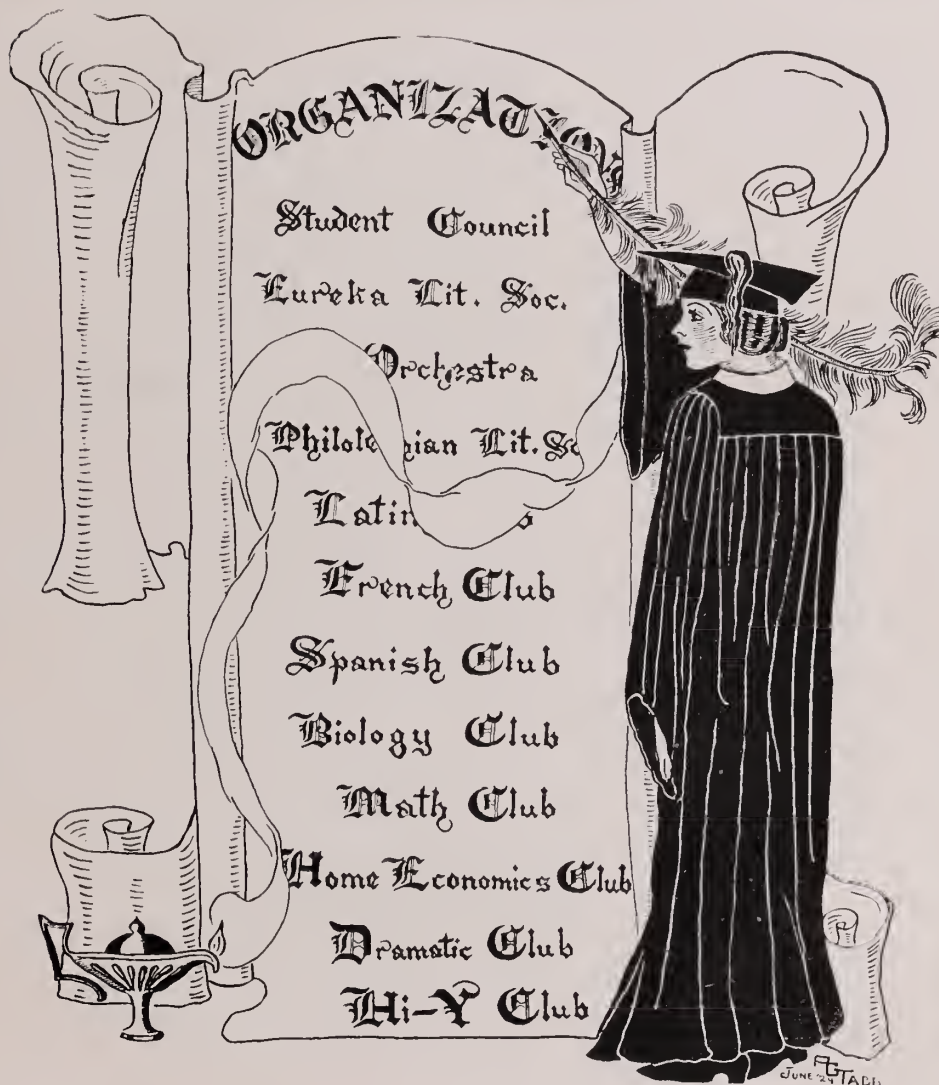 ORGANIZATION
Student Council
Eureka Lit. Soc.
Orchestra
Lit.
Latin
French Club
Spanish Club
Biology Club
Math Club
Home Economics Club
Dramatic Club
Hi-Y Club
JUNE '24